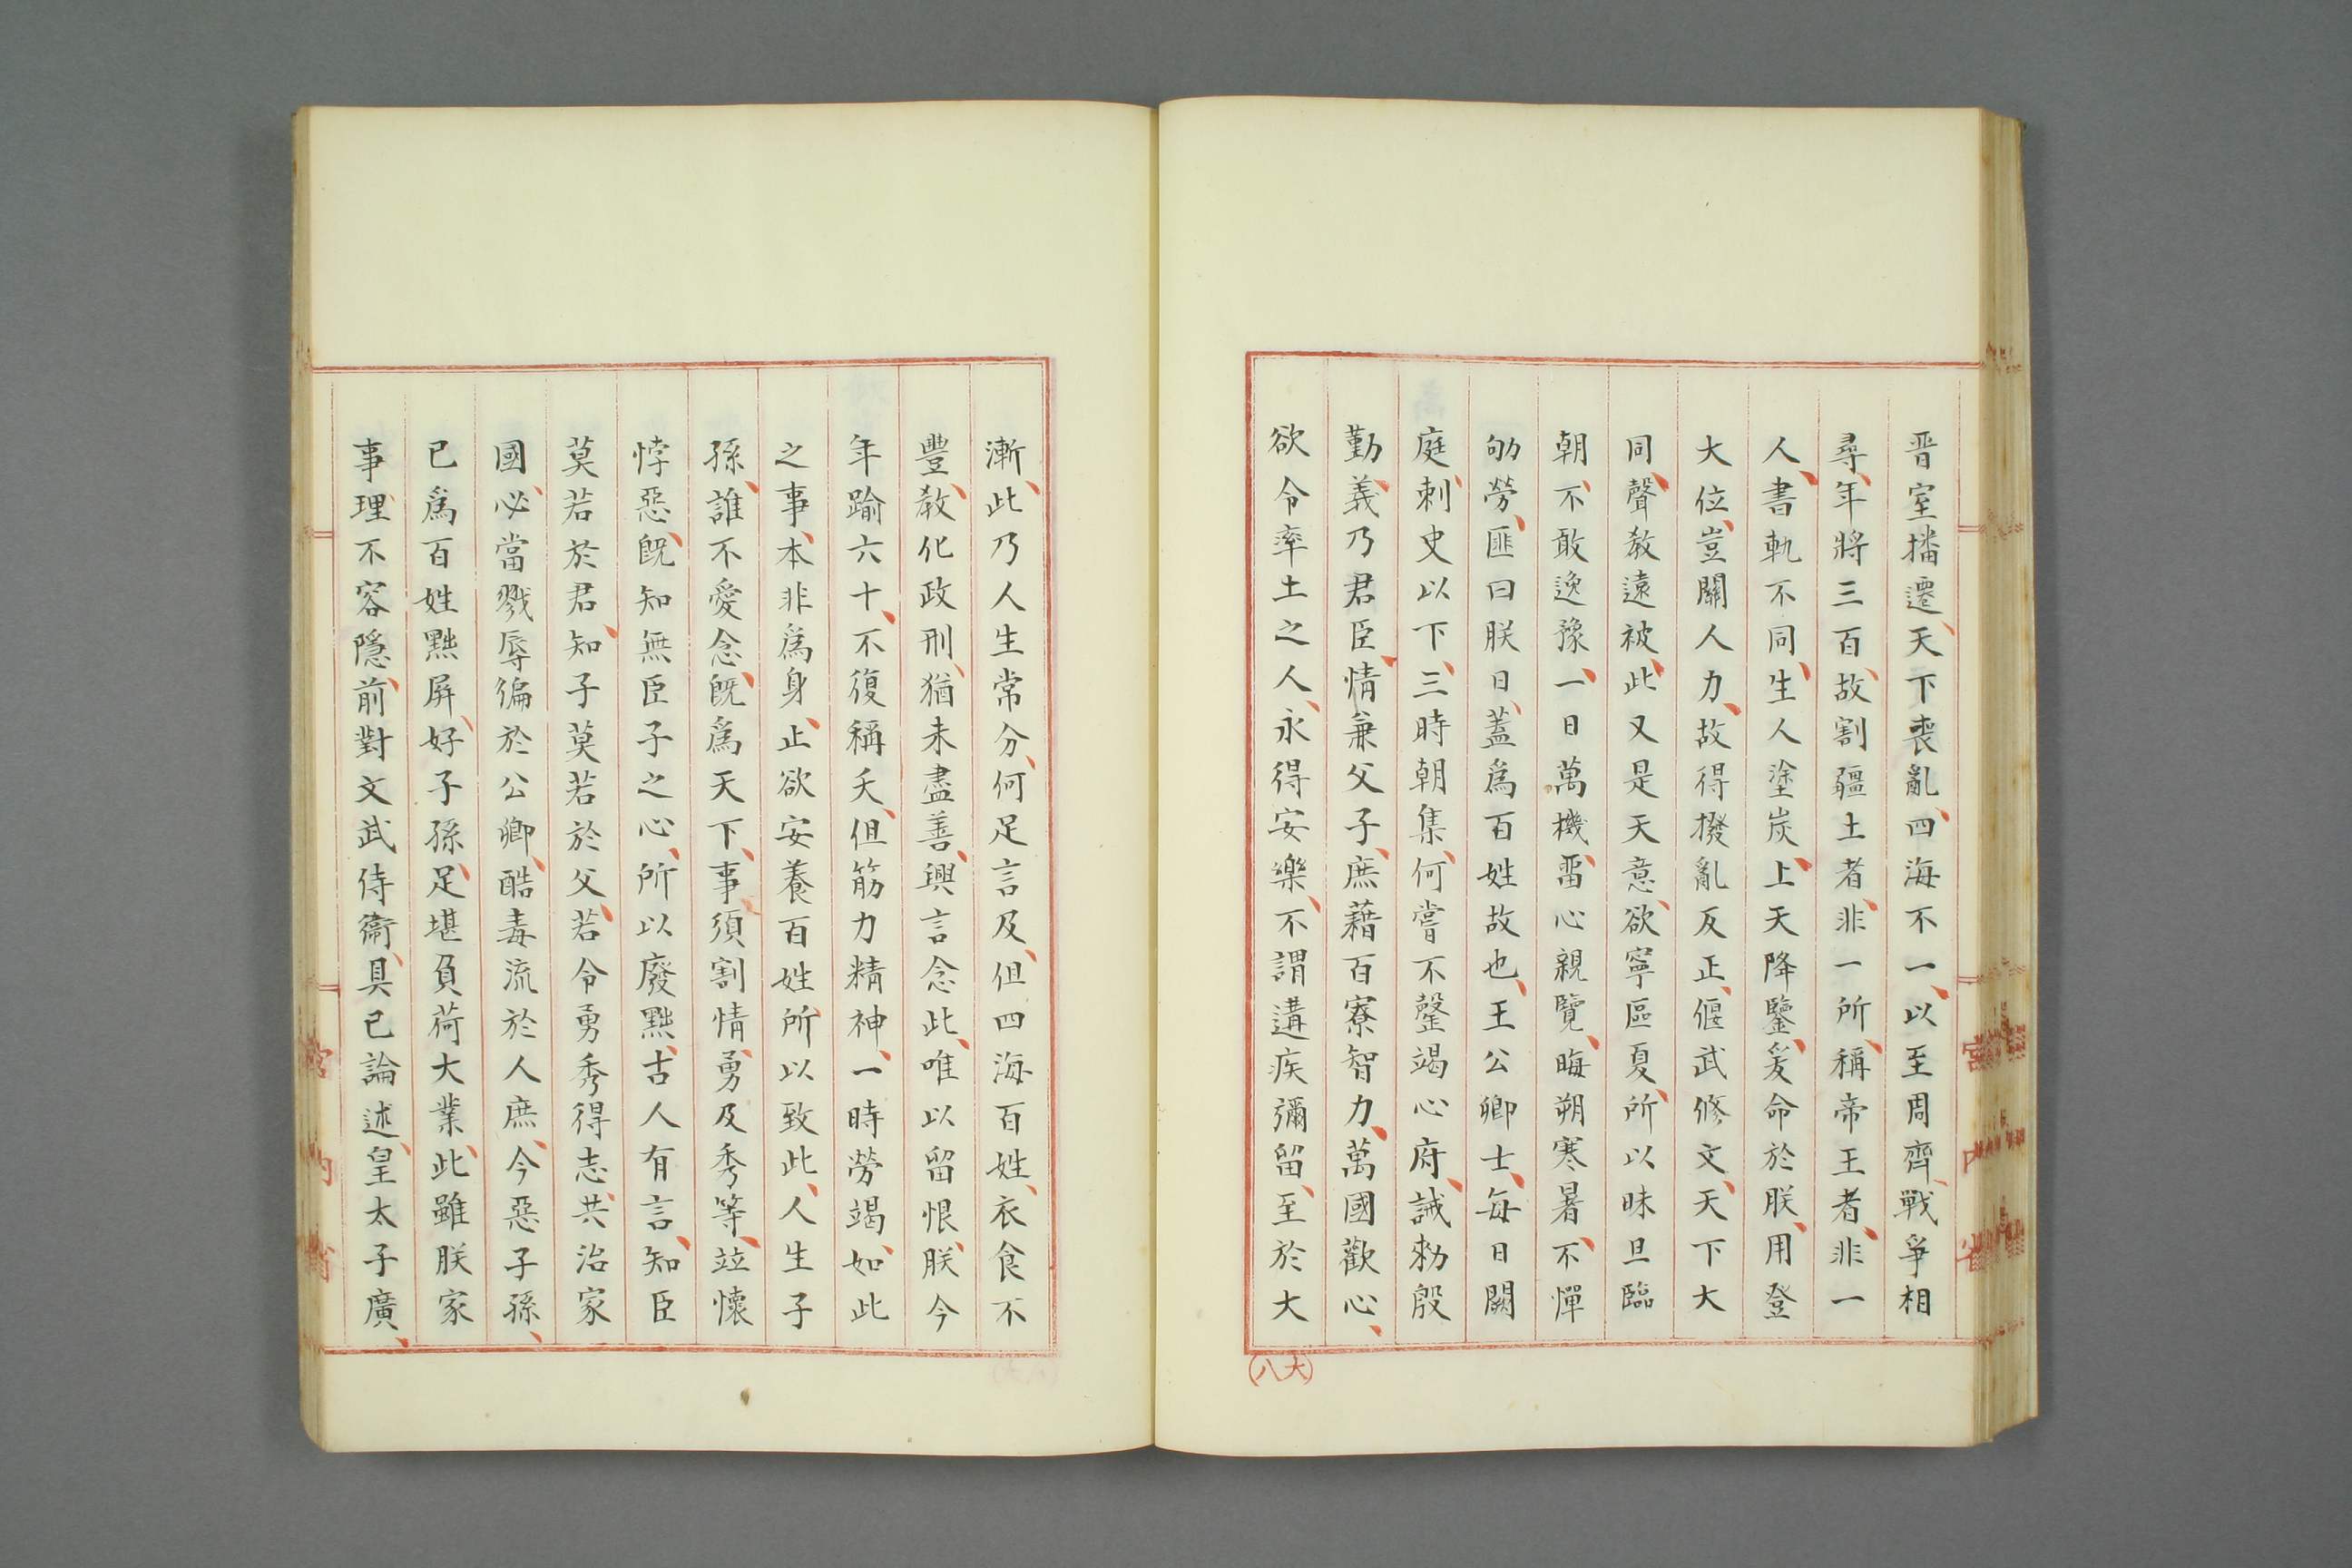 晋室播遷天下喪亂四海不一以至周齊戰爭相
尋年將三百故割疆土者非一所稱帝王者非一
人書軌不同生人塗炭上天降鑒爰命於朕用登
大位豈關人力故得撥亂反正偃武修文天下大
同聲教遠被此又是天意欲寧區夏所以昧旦臨
朝不敢逸豫一日萬機畱心親覽晦朔寒暑不憚
劬勞匪曰朕日蓋爲百姓故也王公卿士每日闕
庭刺史以下三時朝集何嘗不罄竭心府誡勑殷
勤義乃君臣情兼父子庶藉百寮智力萬國歡心
欲令率土之人永得安樂不謂遘疾彌留至於大
(大八)
漸此乃人生常分何足言及但四海百姓衣食不
豐教化政刑猶未盡善興言念此唯以留恨朕今
年踰六十不復稱夭但筋力精神一時勞竭如此
之事本非爲身止欲安養百姓所以致此人生子
孫誰不愛念既爲天下事須割情勇及秀等竝懷
悖惡既知無臣子之心所以廢黜古人有言知臣
莫若於君知子莫若於父若令勇秀得志共治家
國必當戮辱徧於公卿酷毒流於人庶今惡子孫
已爲百姓黜屏好子孫足堪負荷大業此雖朕家
事理不容隱前對文武侍衞具已論述皇太子廣
宮内省